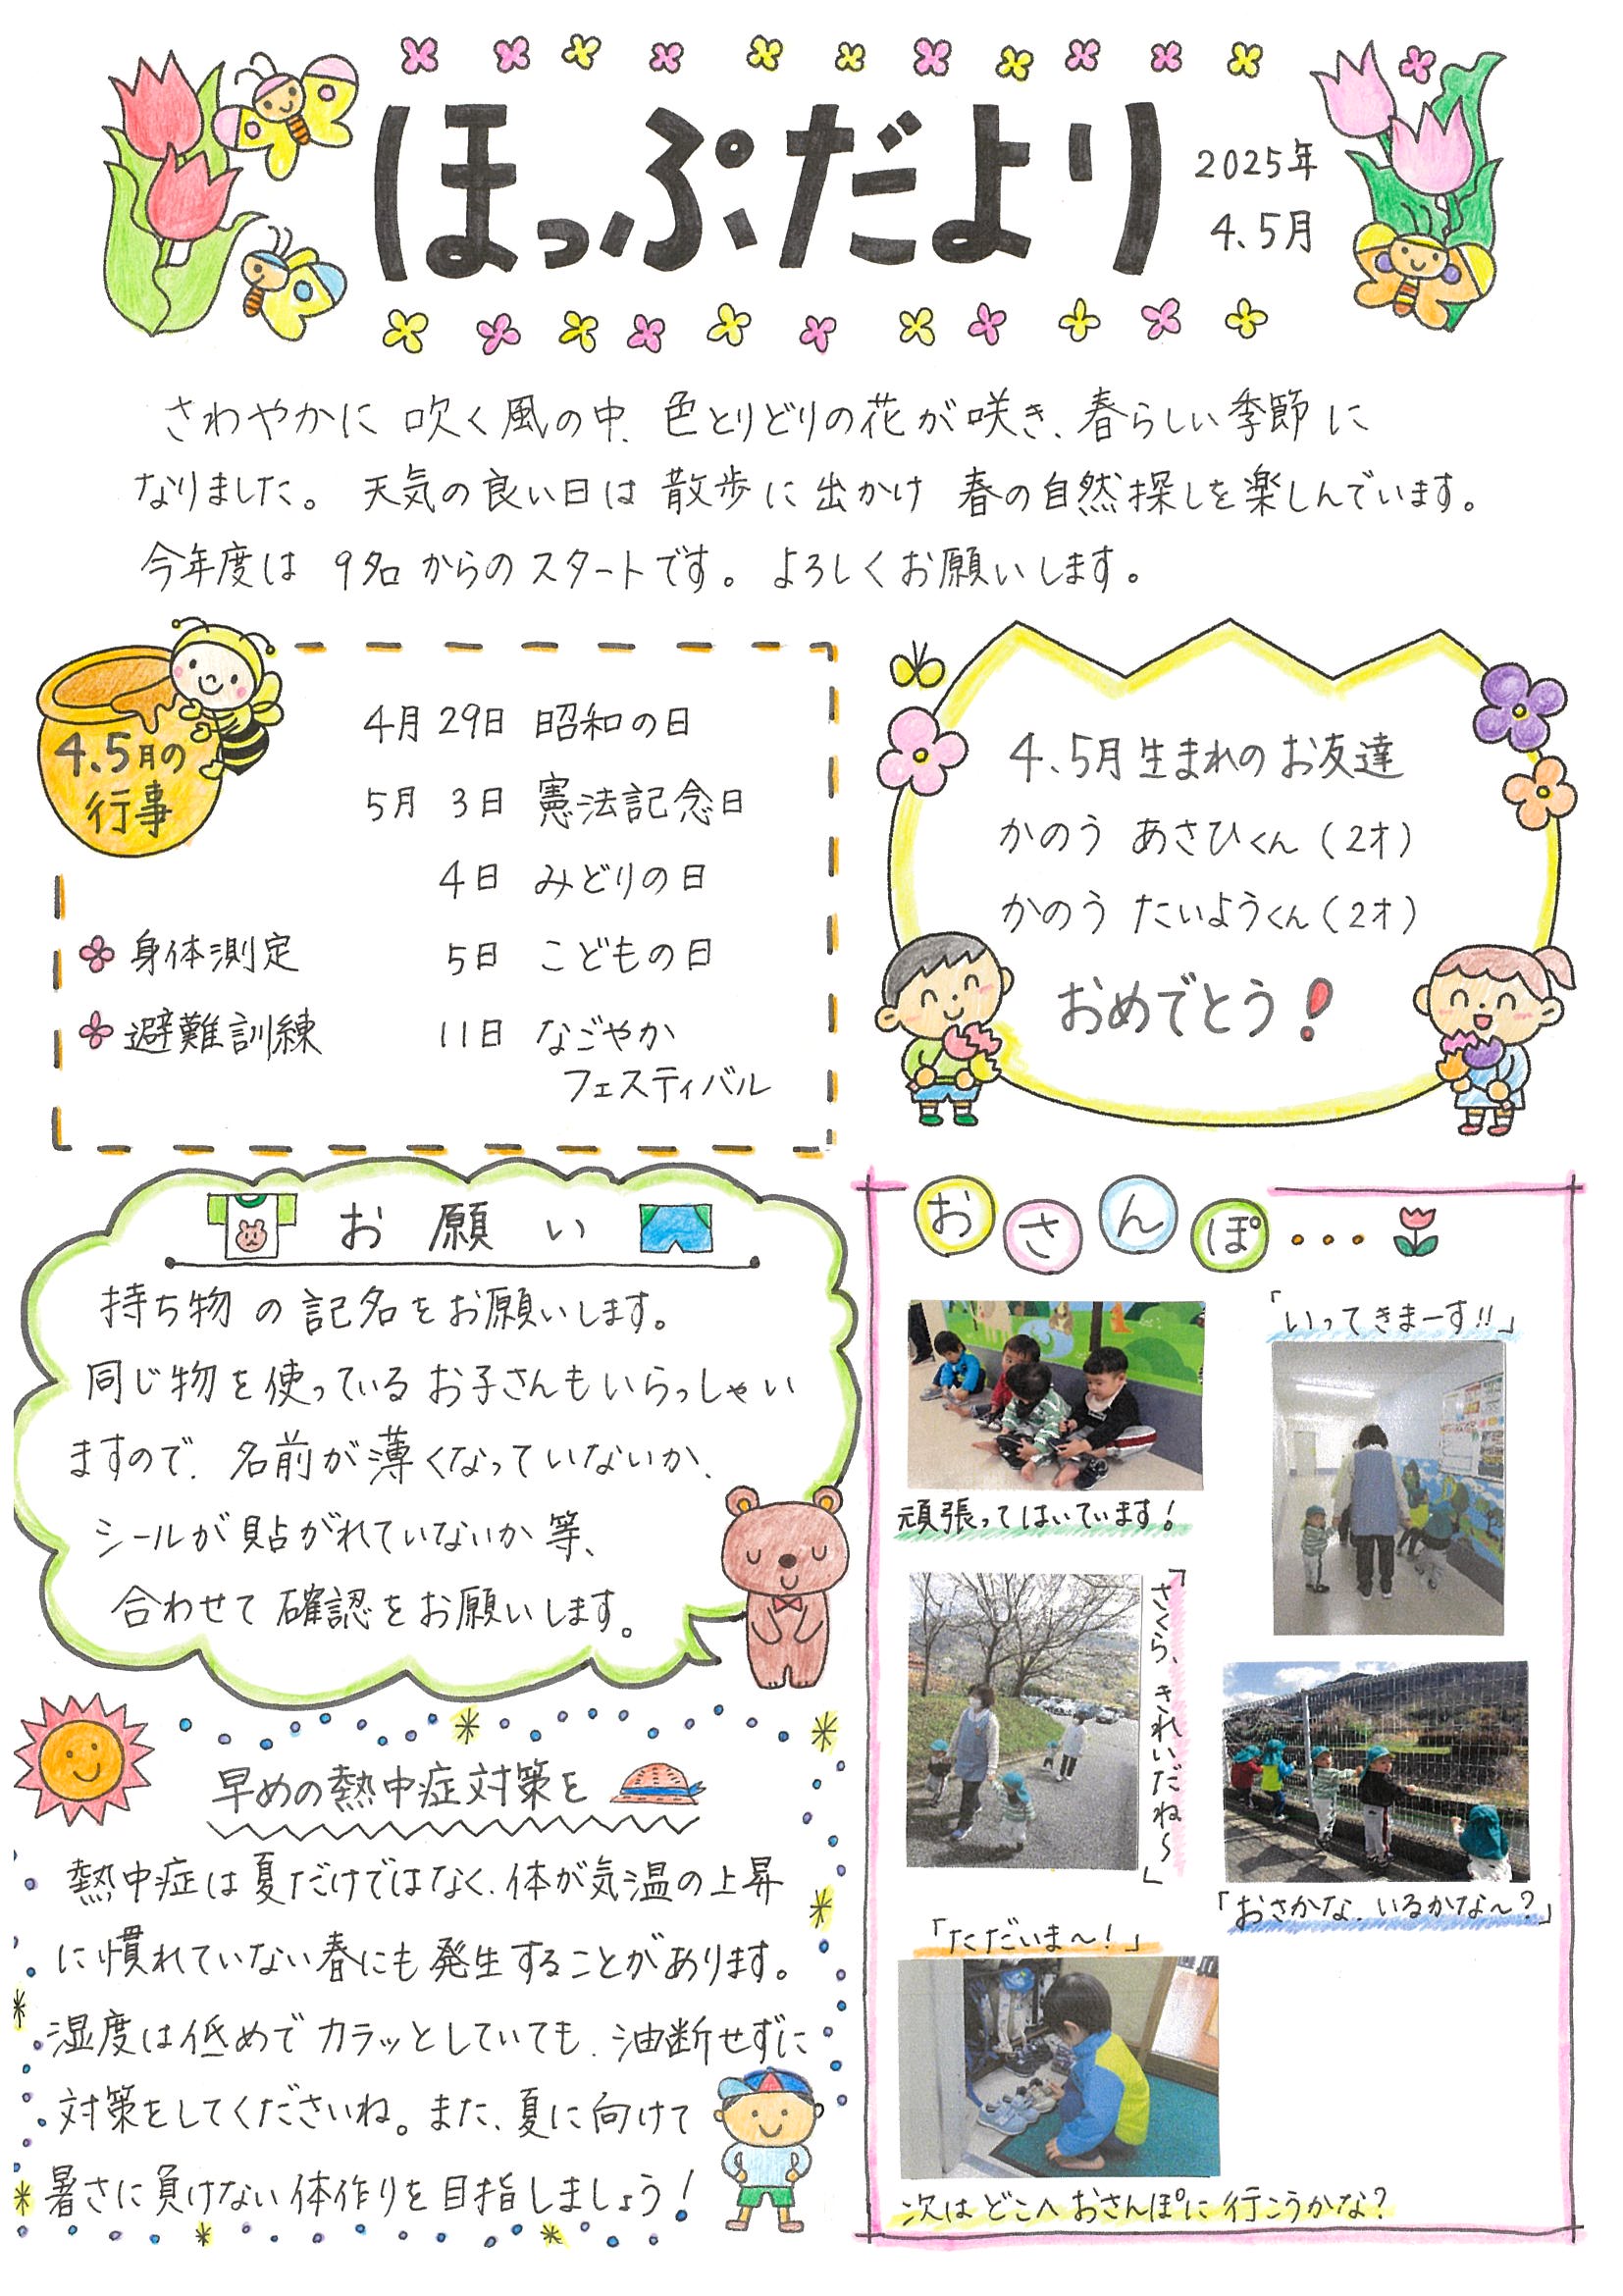 ほっぷだより
2025年
4、5月
さわやかに 吹く風の中、色とりどりの花が咲き、春らしい季節に
なりました。天気の良い日は散歩に出かけ 春の自然探しを楽しんでいます。
今年度は 9名からのスタートです。よろしくお願いします。
4、5月の
行事
4月29日 昭和の日
5月 3日 憲法記念日
4日 みどりの日
身体測定
5日 こどもの日
避難訓練
11日 なごやか
フェスティバル
4、5月生まれのお友達
かのう あさひくん(2才)
かのう たいようくん(2才)
おめでとう!
お願い
持ち物の記名をお願いします。
同じ物を使っているお子さんもいらっしゃい
ますので、名前が薄くなっていないか、
シールが貼がれていないか等、
合わせて確認をお願いします。
早めの熱中症対策を
熱中症は夏だけではなく、体が気温の上昇
に慣れていない春にも発生することがあります。
湿度は低めでカラッとしていても、油断せずに
対策をしてくださいね。また、夏に向けて
暑さに負けない体作りを目指しましょう!
おさんぽ・・・
「いってきまーす!!」
頑張ってはいています!
「さくら、きれいだね〜」
「おさかな、いるかな〜?」
「ただいま〜!」
次はどこへおさんぽに行こうかな?